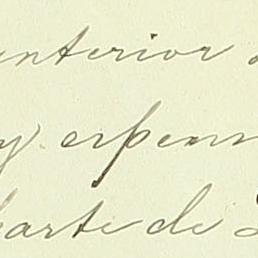 anterior
y espens
parte de